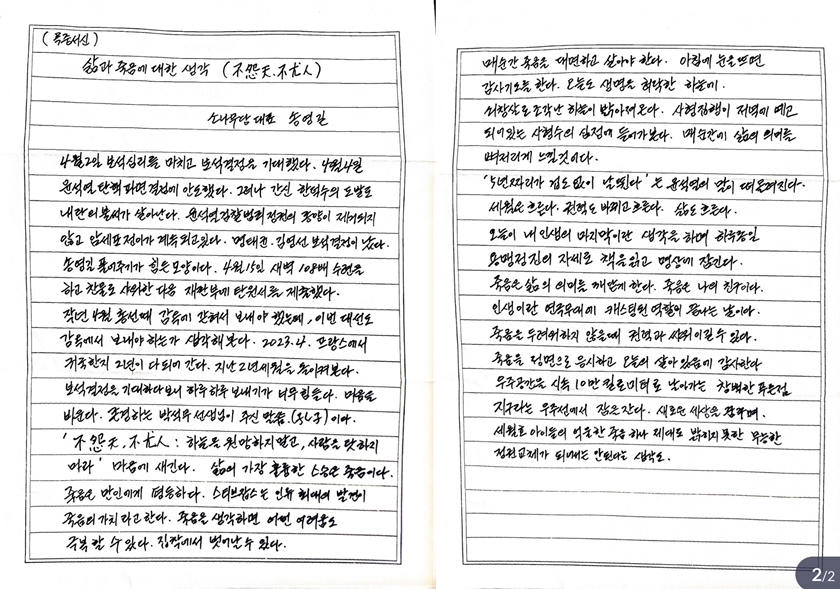 (옥중서신)
삶과 죽음에 대한 생각 (不怨天, 不尤人)
소나무당 대표 송영길
4월2일 보석심리를 마치고 보석결정을 기대했다. 4월4일
윤석열 탄핵 파면결정에 안도했다. 그러나 간신 한덕수의 도발로
내란의 불씨가 살아난다. 윤석열검찰범죄정권의 종양이 제거되지
않고 암세포 전이가 계속되고있다. 명태균. 김영선 보석결정이 났다.
송영길 풀어주기가 힘든 모양이다. 4월15일 새벽 108배 수련을
하고 찬물로 샤워한 다음 재판부에 탄원서를 제출했다.
작년 4월 총선때 감옥에 갇혀서 보내야 했는데, 이번 대선도
감옥에서 보내야 하는가 생각해본다. 2023.4. 프랑스에서
귀국한지 2년이 다되어 간다. 지난 2년세월을 돌이켜본다.
보석결정을 기대하다보니 하루하루 보내기가 너무 힘들다. 마음을
비운다. 존경하는 박석무 선생님이 주신 말씀.
'不怨天, 不尤人 : 하늘을 원망하지말고, 사람을 탓하지
마라' 마음에 새긴다. 삶의 가장 훌륭한 스승은 죽음이다.
죽음은 만인에게 평등하다. 스티브잡스는 인류 최대의 발견이
죽음의 가치라고 한다. 죽음을 생각하면 어떤 어려움도
극복할 수 있다. 집착에서 벗어날 수 있다.
매순간 죽음을 대면하고 살아야 한다. 아침에 눈을 뜨면
감사기도를 한다. 오늘도 생명을 허락한 하늘에.
쇠창살로 조각난 하늘이 밝아져온다. 사형집행이 저녁에 예고
되어있는 사형수의 심정에 들어가본다. 매순간에 삶의 의미를
뼈저리게 느낄것이다.
'5년짜리가 겁도 없이 날뛴다'는 윤석열의 말이 떠올려진다.
세월은 흐른다. 권력도 바뀌고 흐른다. 삶도 흐른다.
오늘이 내 인생의 마지막이란 생각을 하며 하루종일
용맹정진의 자세로 책을 읽고 명상에 잠긴다.
죽음은 삶의 의미를 깨닫게 한다. 죽음은 나의 친구이다.
인생이란 연극무대에 캐스팅된 역할이 끝나는 날이다.
죽음을 두려워하지 않을때 권력과 싸워이길수 있다.
죽음을 정면으로 응시하고 오늘의 살아있음에 감사한다
우주공간을 시속 10만 킬로미터로 날아가는 창백한 푸른점
지구라는 우주선에서 잠을 잔다. 새로운 세상을 꿈꾸며.
세월호 아이들의 억울한 죽음 하나 제대로 밝히지 못한 무능한
정권교체가 되어서는 안된다는 생각도.
2/2